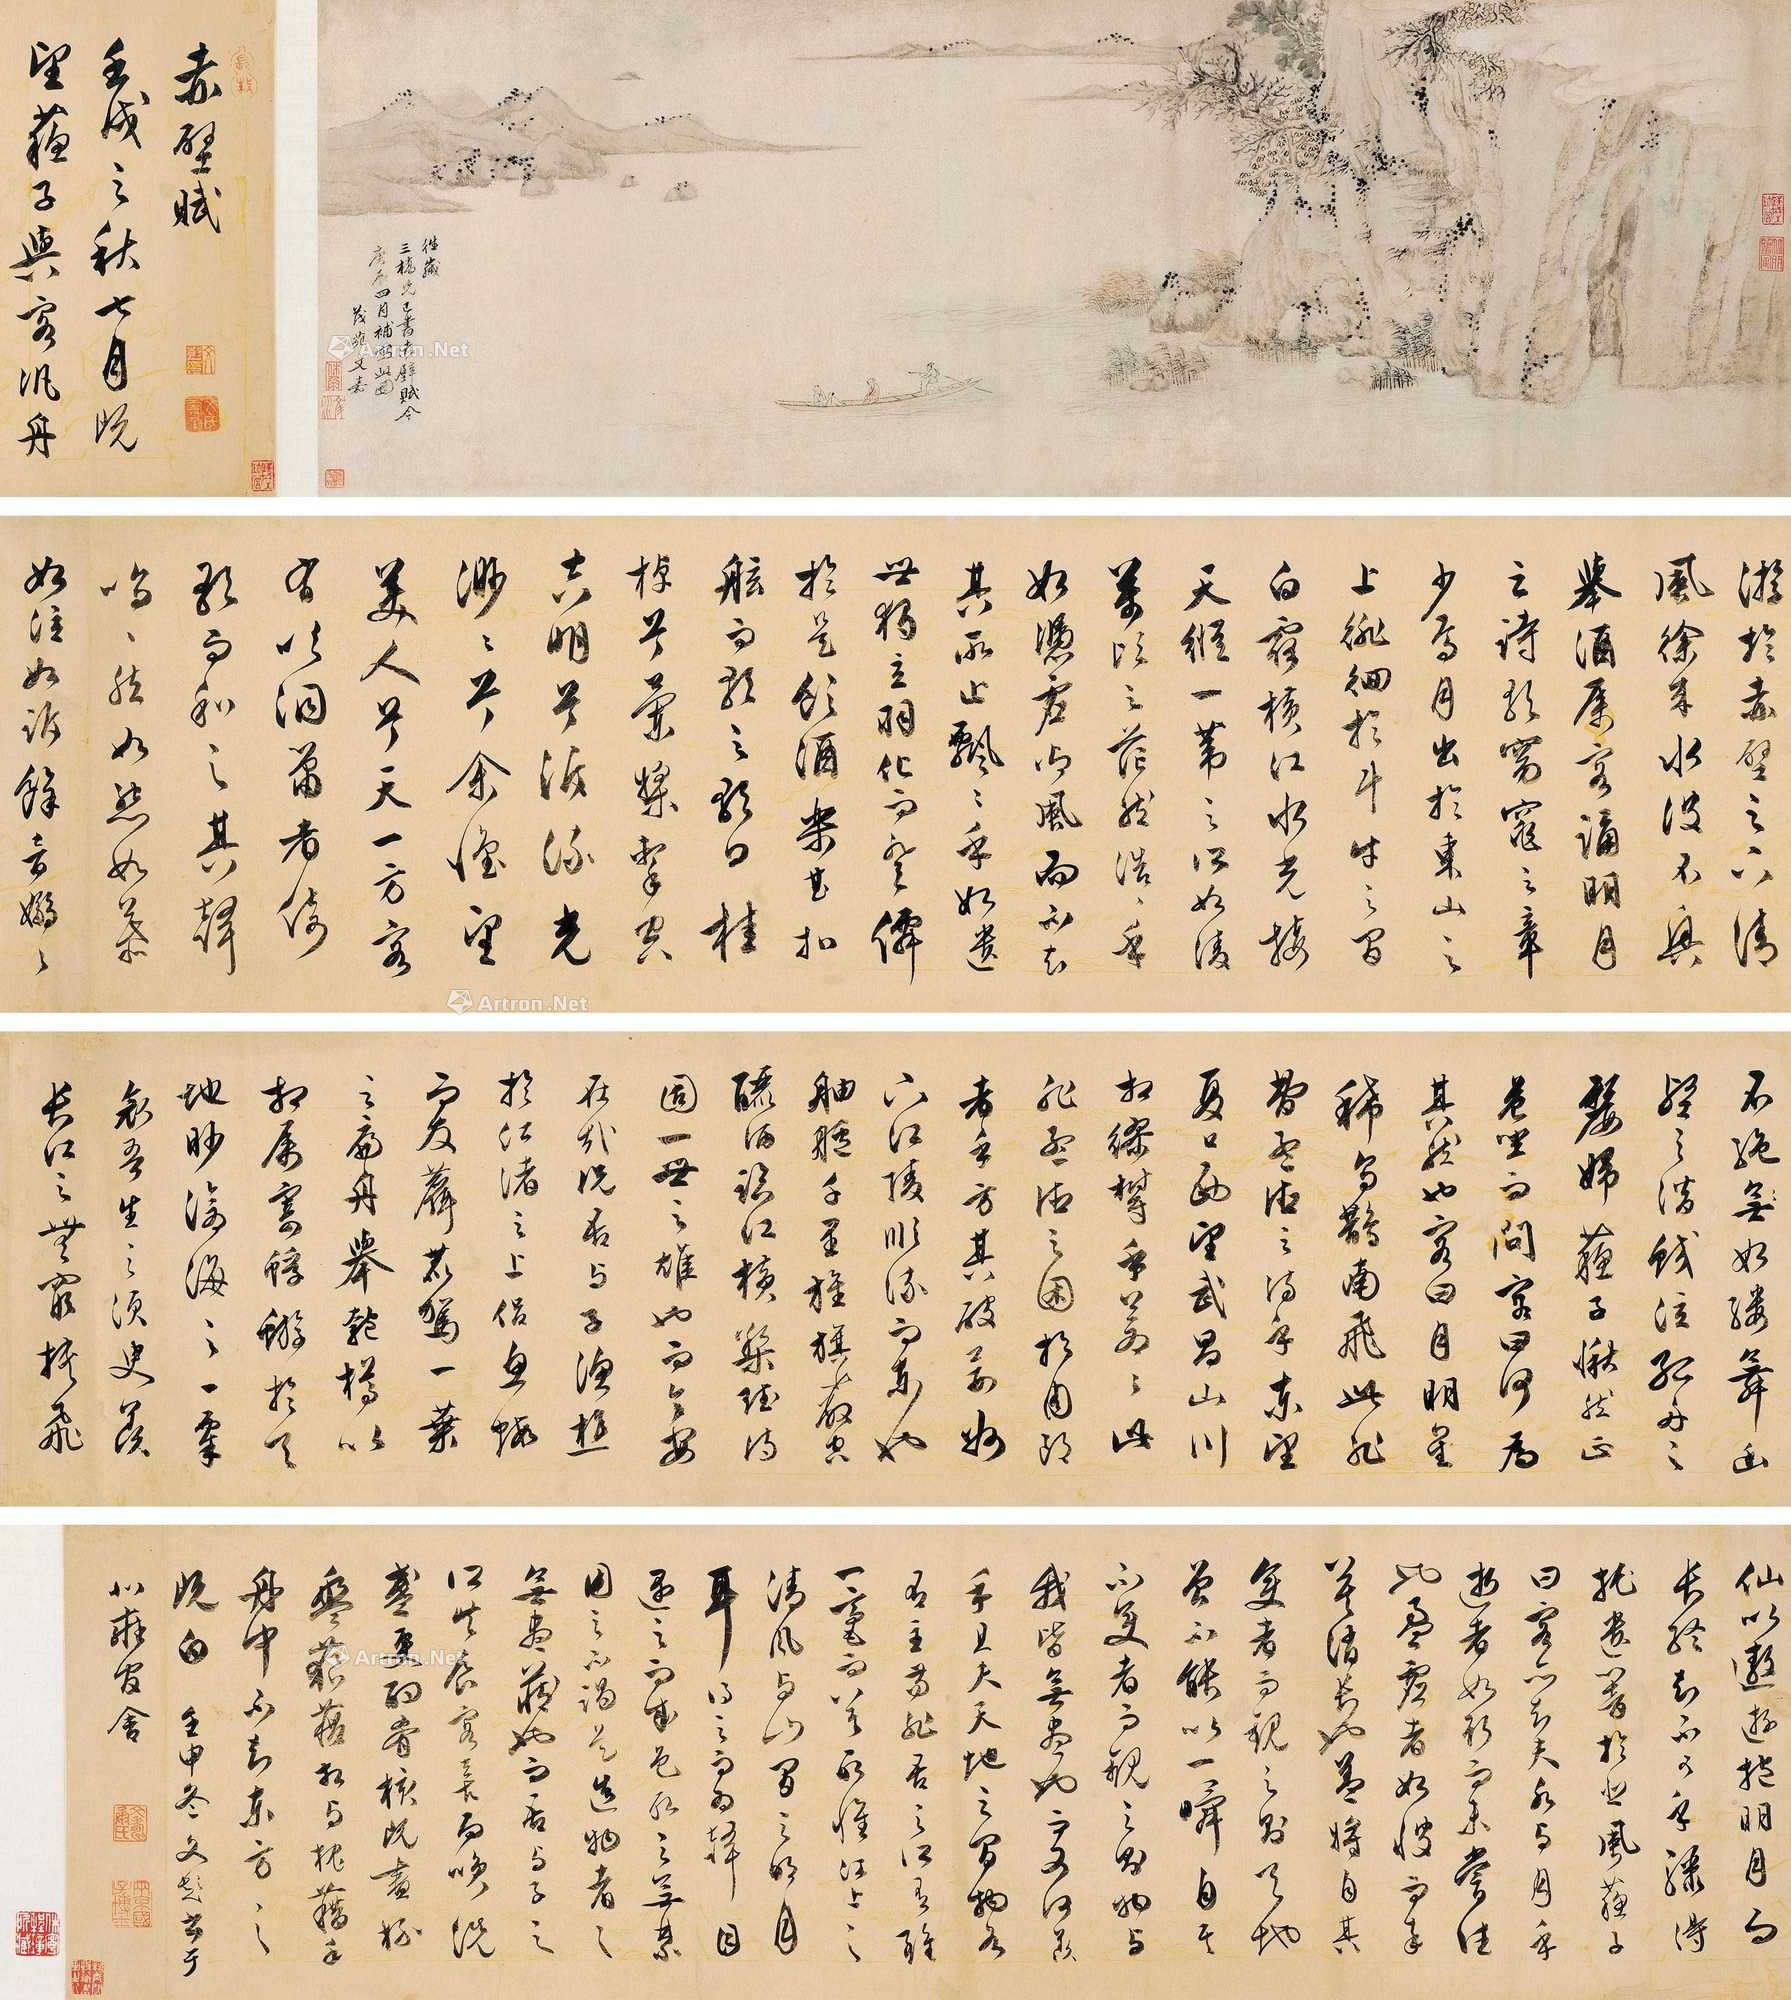 往歲
三橋兄已書赤壁賦今
庚 四月補 此圖
茂苑文嘉
赤壁賦
壬戌之秋七月既
望蘇子與客汎舟
游於赤壁之下清
風徐來水波不興
舉酒屬客誦明月
之詩歌窈窕之章
少焉月出於東山之
上徘徊於斗牛之間
白露橫江水光接
天縱一葦之所如凌
萬頃之茫然浩浩乎
如憑虛御風而不知
其所止飄飄乎如遺
世獨立羽化而登僊
於是飲酒樂甚扣
舷而歌之歌曰桂
棹兮蘭槳擊空
明兮泝流光
渺渺兮余懷望
美人兮天一方客
有吹洞簫者倚
歌而和之其聲
嗚嗚然如怨如慕
如泣如訴餘音嫋嫋
不絕如縷舞幽
壑之潛蛟泣孤舟之
嫠婦蘇子愀然正
危坐而問客曰何為
其然也客曰月明星
稀烏鵲南飛此非
曹孟德之詩乎東望
夏口西望武昌山川
相繆鬱乎蒼蒼此
非孟德之困於周郎
者乎方其破荊州
下江陵順流而東也
舳艫千里旌旗蔽空
釃酒臨江橫槊賦詩
固一世之雄也而今安
在哉況吾與子漁樵
於江渚之上侶魚蝦
而友麋鹿駕一葉
之扁舟舉匏樽以
相屬寄蜉蝣於天
地眇滄海之一粟
哀吾生之須臾羨
長江之無窮挾飛
仙以遨遊抱明月而
長終知不可乎驟得
托遺響於悲風蘇子
曰客亦知夫水與月乎
逝者如斯而未嘗往
也盈虛者如彼而卒
莫消長也蓋將自其
變者而觀之則天地
曾不能以一瞬自其
不變者而觀之則物與
我皆無盡也而又何羨
乎且夫天地之間物各
有主苟非吾之所有雖
一毫而莫取惟江上之
清風與山間之明月
耳得之而為聲目
遇之而成色取之無禁
用之不竭是造物者之
無盡藏也而吾與子之
所共食客喜而笑洗
盞更酌肴核既盡杯
盤狼藉相與枕藉乎
舟中不知東方之
既白 壬申冬文彭書于
官舍
Artron.Net
Artron.Net
Artron.Net